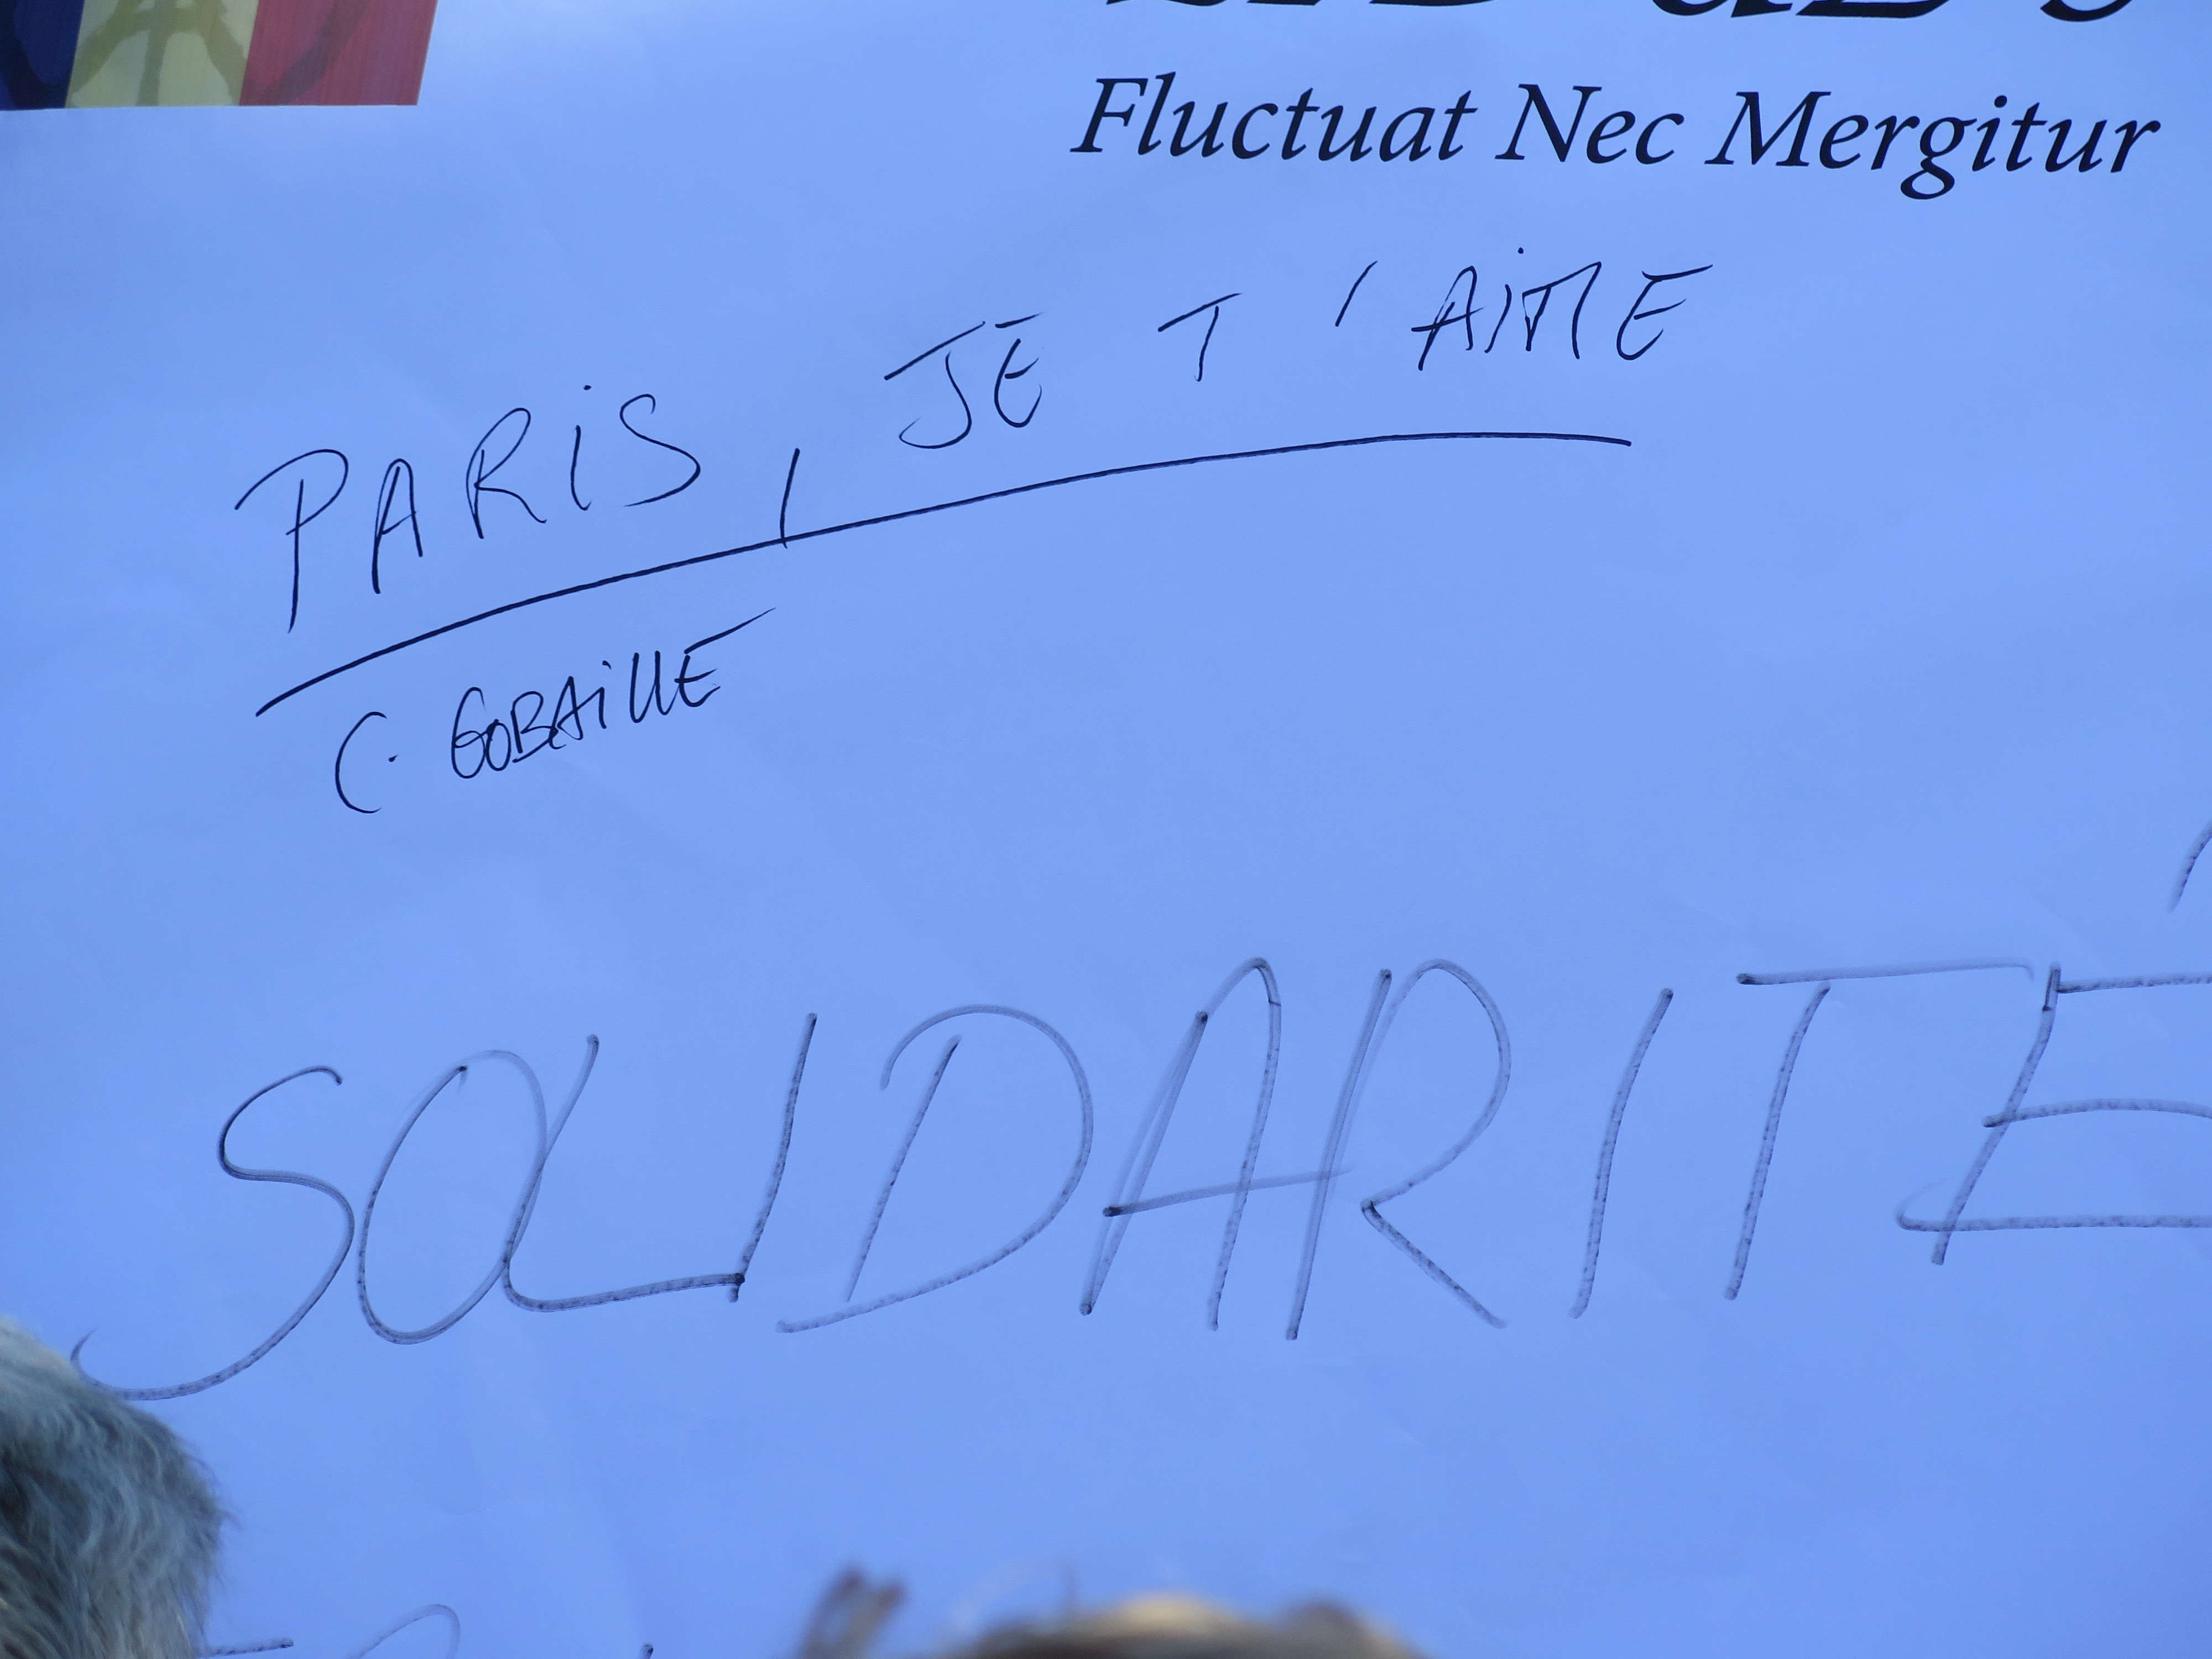 Fluctuat Nec Mergitur
PARIS, JE T'AIME
C. GOBAILLE
SOLIDARITÉ